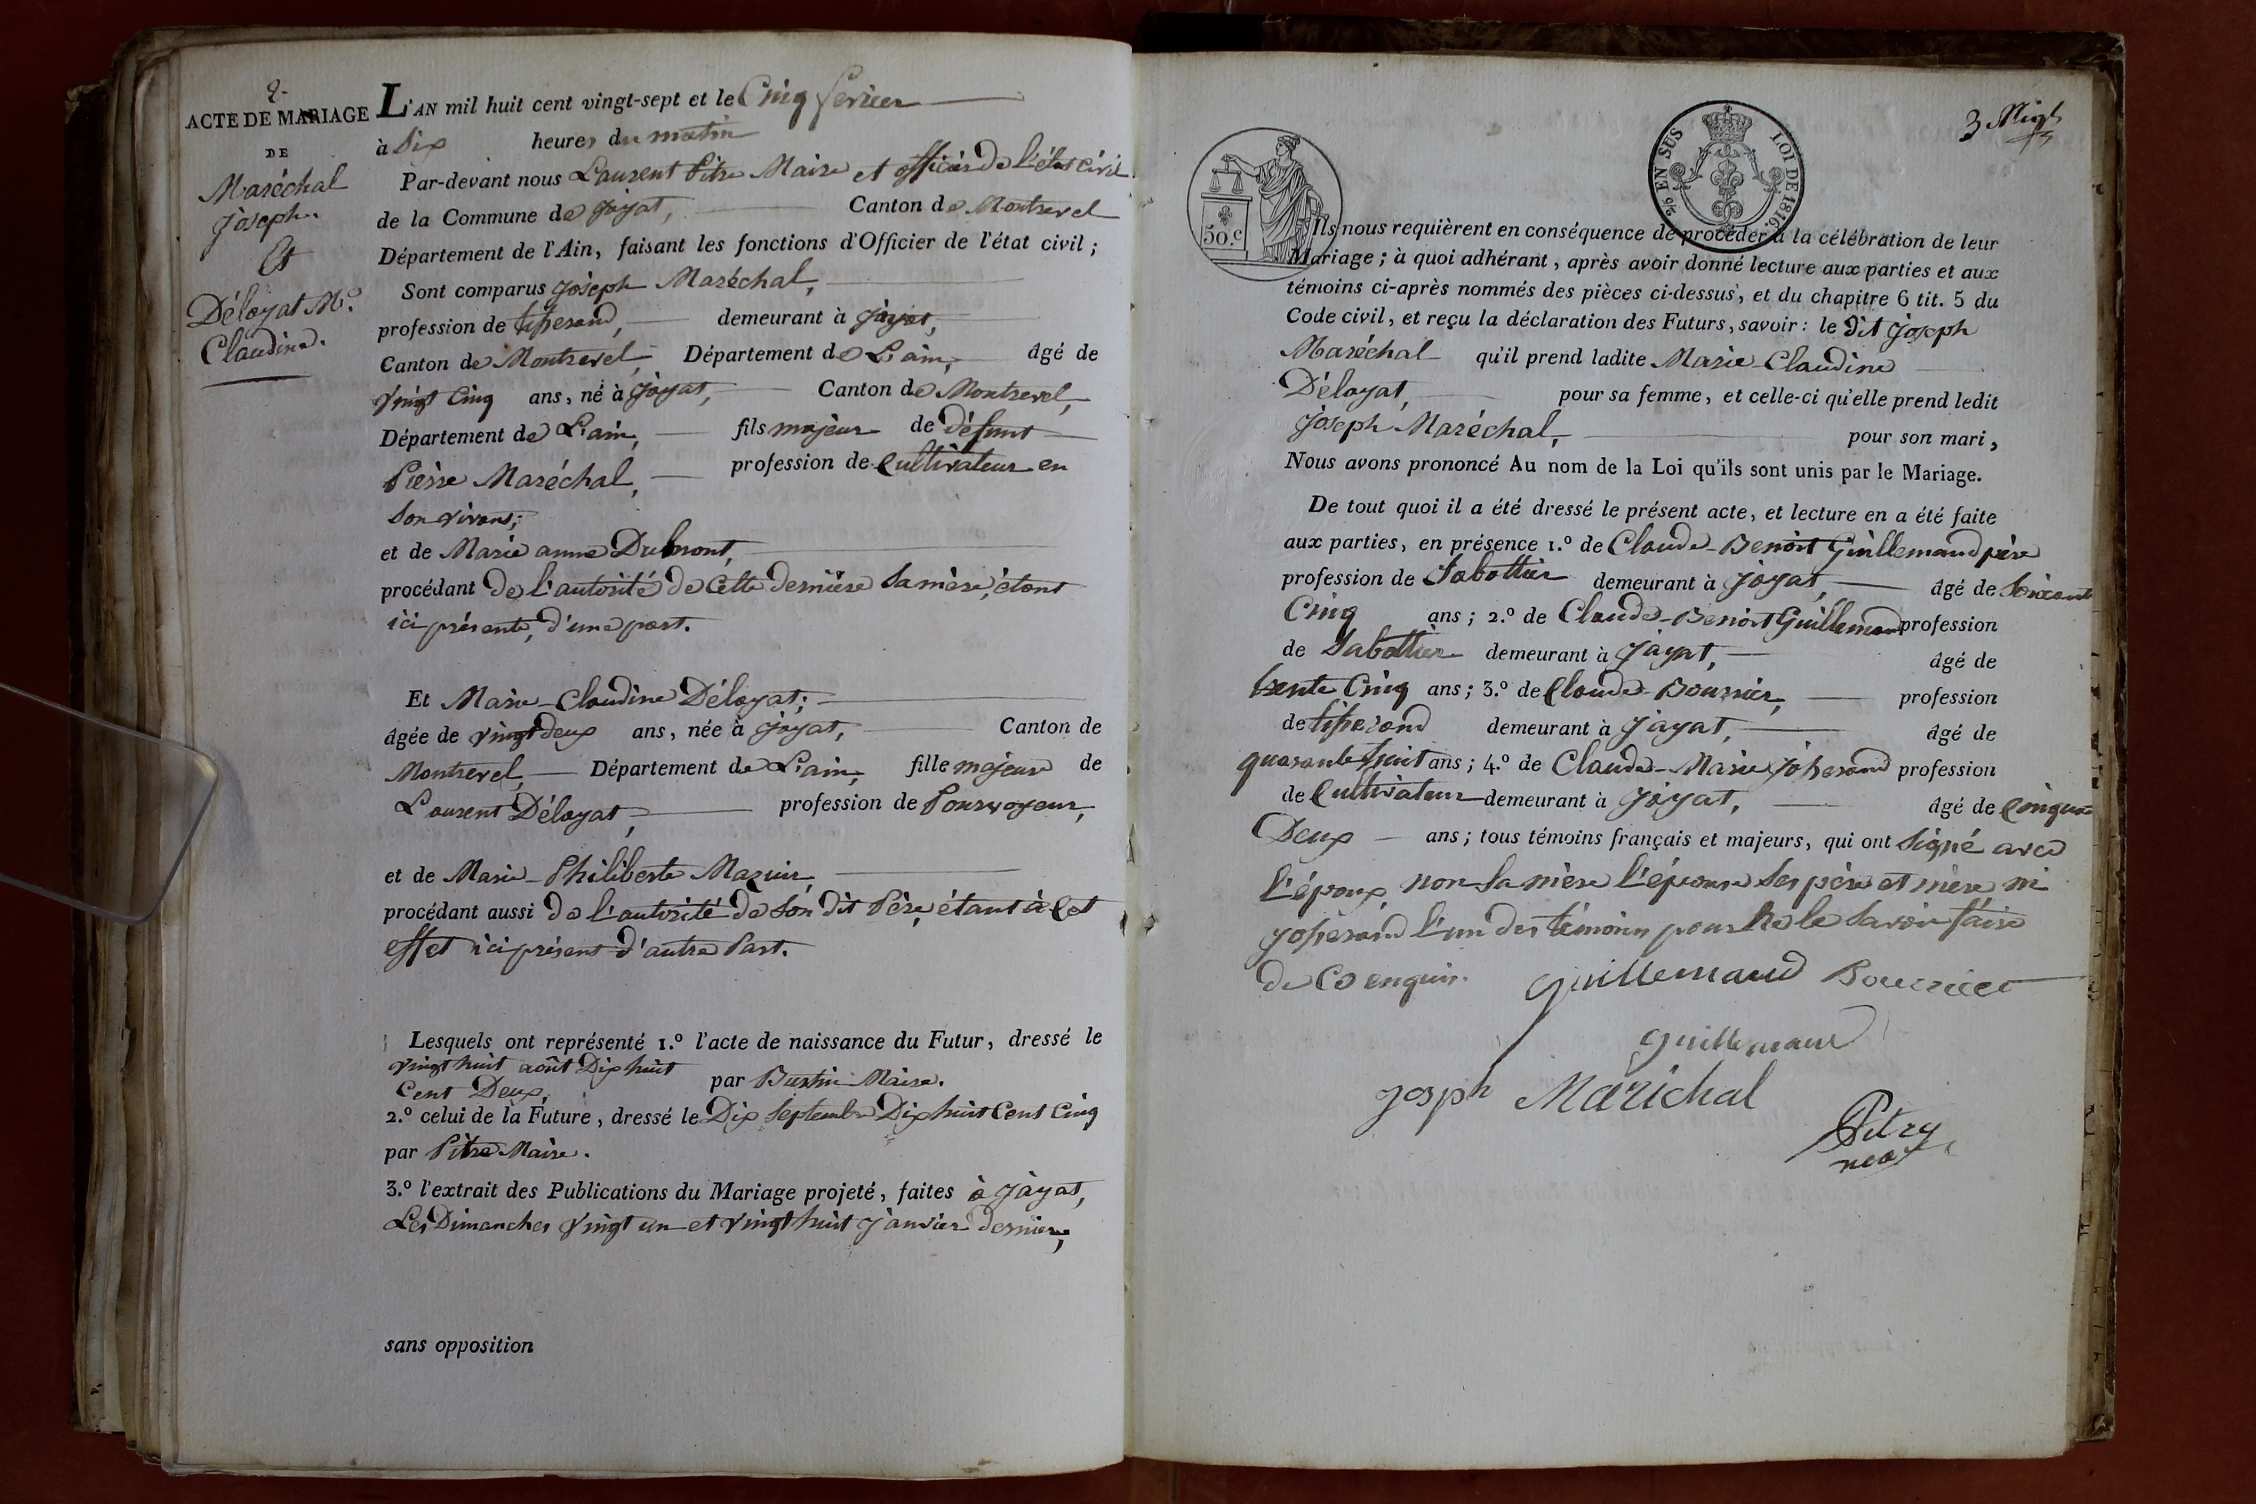 2.
ACTE DE MARIAGE
DE
Maréchal
Joseph.
Et
Déloyat M.e
Claudine.
L'AN mil huit cent vingt-sept et le Cinq fevrier
à Dix heures du matin
Par-devant nous Laurent Pitre Maire et officier de l'état civil
de la Commune de Jayat, Canton de Montrevel
Département de l'Ain, faisant les fonctions d'Officier de l'état civil ;
Sont comparus Joseph Maréchal,
profession de tisserand, demeurant à Jayat,
Canton de Montrevel, Département de L'ain, âgé de
vingt Cinq ans, né à Jayat, Canton de Montrevel,
Département de L'ain, fils majeur de défunt
Pierre Maréchal, profession de Cultivateur en
Son vivant;
et de Marie anne Dubmont,
procédant de l'autorité de Cette dernière Sa mère, étant
ici présente, d'une part.
Et Marie-Claudine Déloyat;
âgée de vingt deux ans, née à Jayat, Canton de
Montrevel, Département de L'ain, fille majeure de
Laurent Déloyat, profession de Pourvoyeur,
et de Marie-Philiberte Mazuir,
procédant aussi de l'autorité de Son dit Père, étant à Cet
effet ici présent d'autre Part.
Lesquels ont représenté 1.º l'acte de naissance du Futur, dressé le
vingt huit août Dix huit
Cent Deux, par Buthin Maire.
2.º celui de la Future, dressé le Dix Septembre Dix huit Cent Cinq
par Pitre Maire.
3.º l'extrait des Publications du Mariage projeté, faites à Jayat,
Les Dimanches vingt un et vingt huit Janvier dernier,
sans opposition
3
50.c
2/6 EN SUS LOI DE 1816.
Ils nous requièrent en conséquence de procéder à la célébration de leur
Mariage ; à quoi adhérant, après avoir donné lecture aux parties et aux
témoins ci-après nommés des pièces ci-dessus, et du chapitre 6 tit. 5 du
Code civil, et reçu la déclaration des Futurs, savoir : le dit Joseph
Maréchal qu'il prend ladite Marie-Claudine
Déloyat, pour sa femme, et celle-ci qu'elle prend ledit
Joseph Maréchal, pour son mari,
Nous avons prononcé Au nom de la Loi qu'ils sont unis par le Mariage.
De tout quoi il a été dressé le présent acte, et lecture en a été faite
aux parties, en présence 1.º de Claude-Benoit Guillemaud père
profession de Sabottier demeurant à Jayat, âgé de Soixante
Cinq ans ; 2.º de Claude-Benoit Guillemaud profession
de Sabottier demeurant à Jayat, âgé de
trente Cinq ans ; 3.º de Claude Bourrier, profession
de tisserand demeurant à Jayat, âgé de
quarante huit ans ; 4.º de Claude-Marie Josserand profession
de Cultivateur demeurant à Jayat, âgé de Cinquante
Deux ans ; tous témoins français et majeurs, qui ont Signé avec
l'époux, non Sa mère l'épouse Ses père et mère ni
Josserand l'un des témoins pour ne le Savoir faire
de Ce enquis. Guillemaud Bourrier
Guillemaud
Josph Maréchal
Pitre